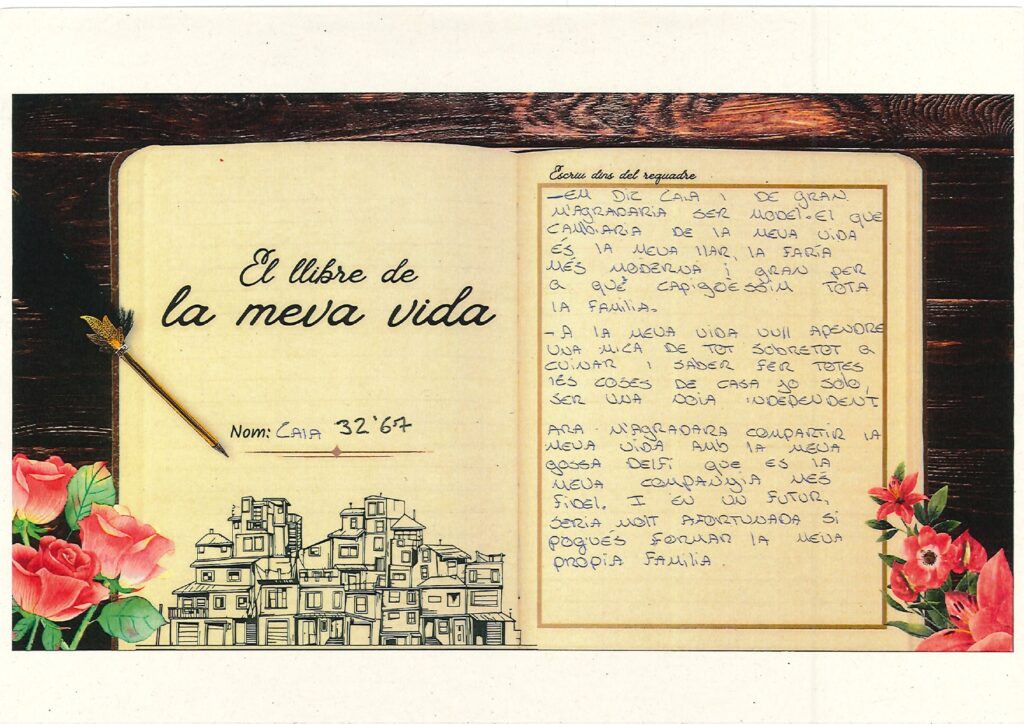 El llibre de
la meva vida
Nom: CAIA 32'67
Escriu dins del requadre
-EM DIC CAIA I DE GRAN
M'AGRADARIA SER MODEL. EL QUE
CAMBIARIA DE LA MEVA VIDA
ÉS LA MEVA LLAR, LA FARÍA
MÉS MODERNA I GRAN PER
A QUÈ CAPIGUESSIM TOTA
LA FAMILIA.
- A LA MEVA VIDA VULL APENDRE
UNA MICA DE TOT SOBRETOT A
CUINAR I SABER FER TOTES
LES COSES DE CASA JO SOLO,
SER UNA NOIA INDEPENDENT
ARA M'AGRADARA COMPARTIR LA
MEVA VIDA AMB LA MEVA
GOSSA DELFI QUE ES LA
MEVA COMPANYIA MES
FIDEL. I EN UN FUTUR,
SERIA MOLT AFORTUNADA SI
POGUÉS FORMAR LA MEVA
PRÒPIA FAMILIA.